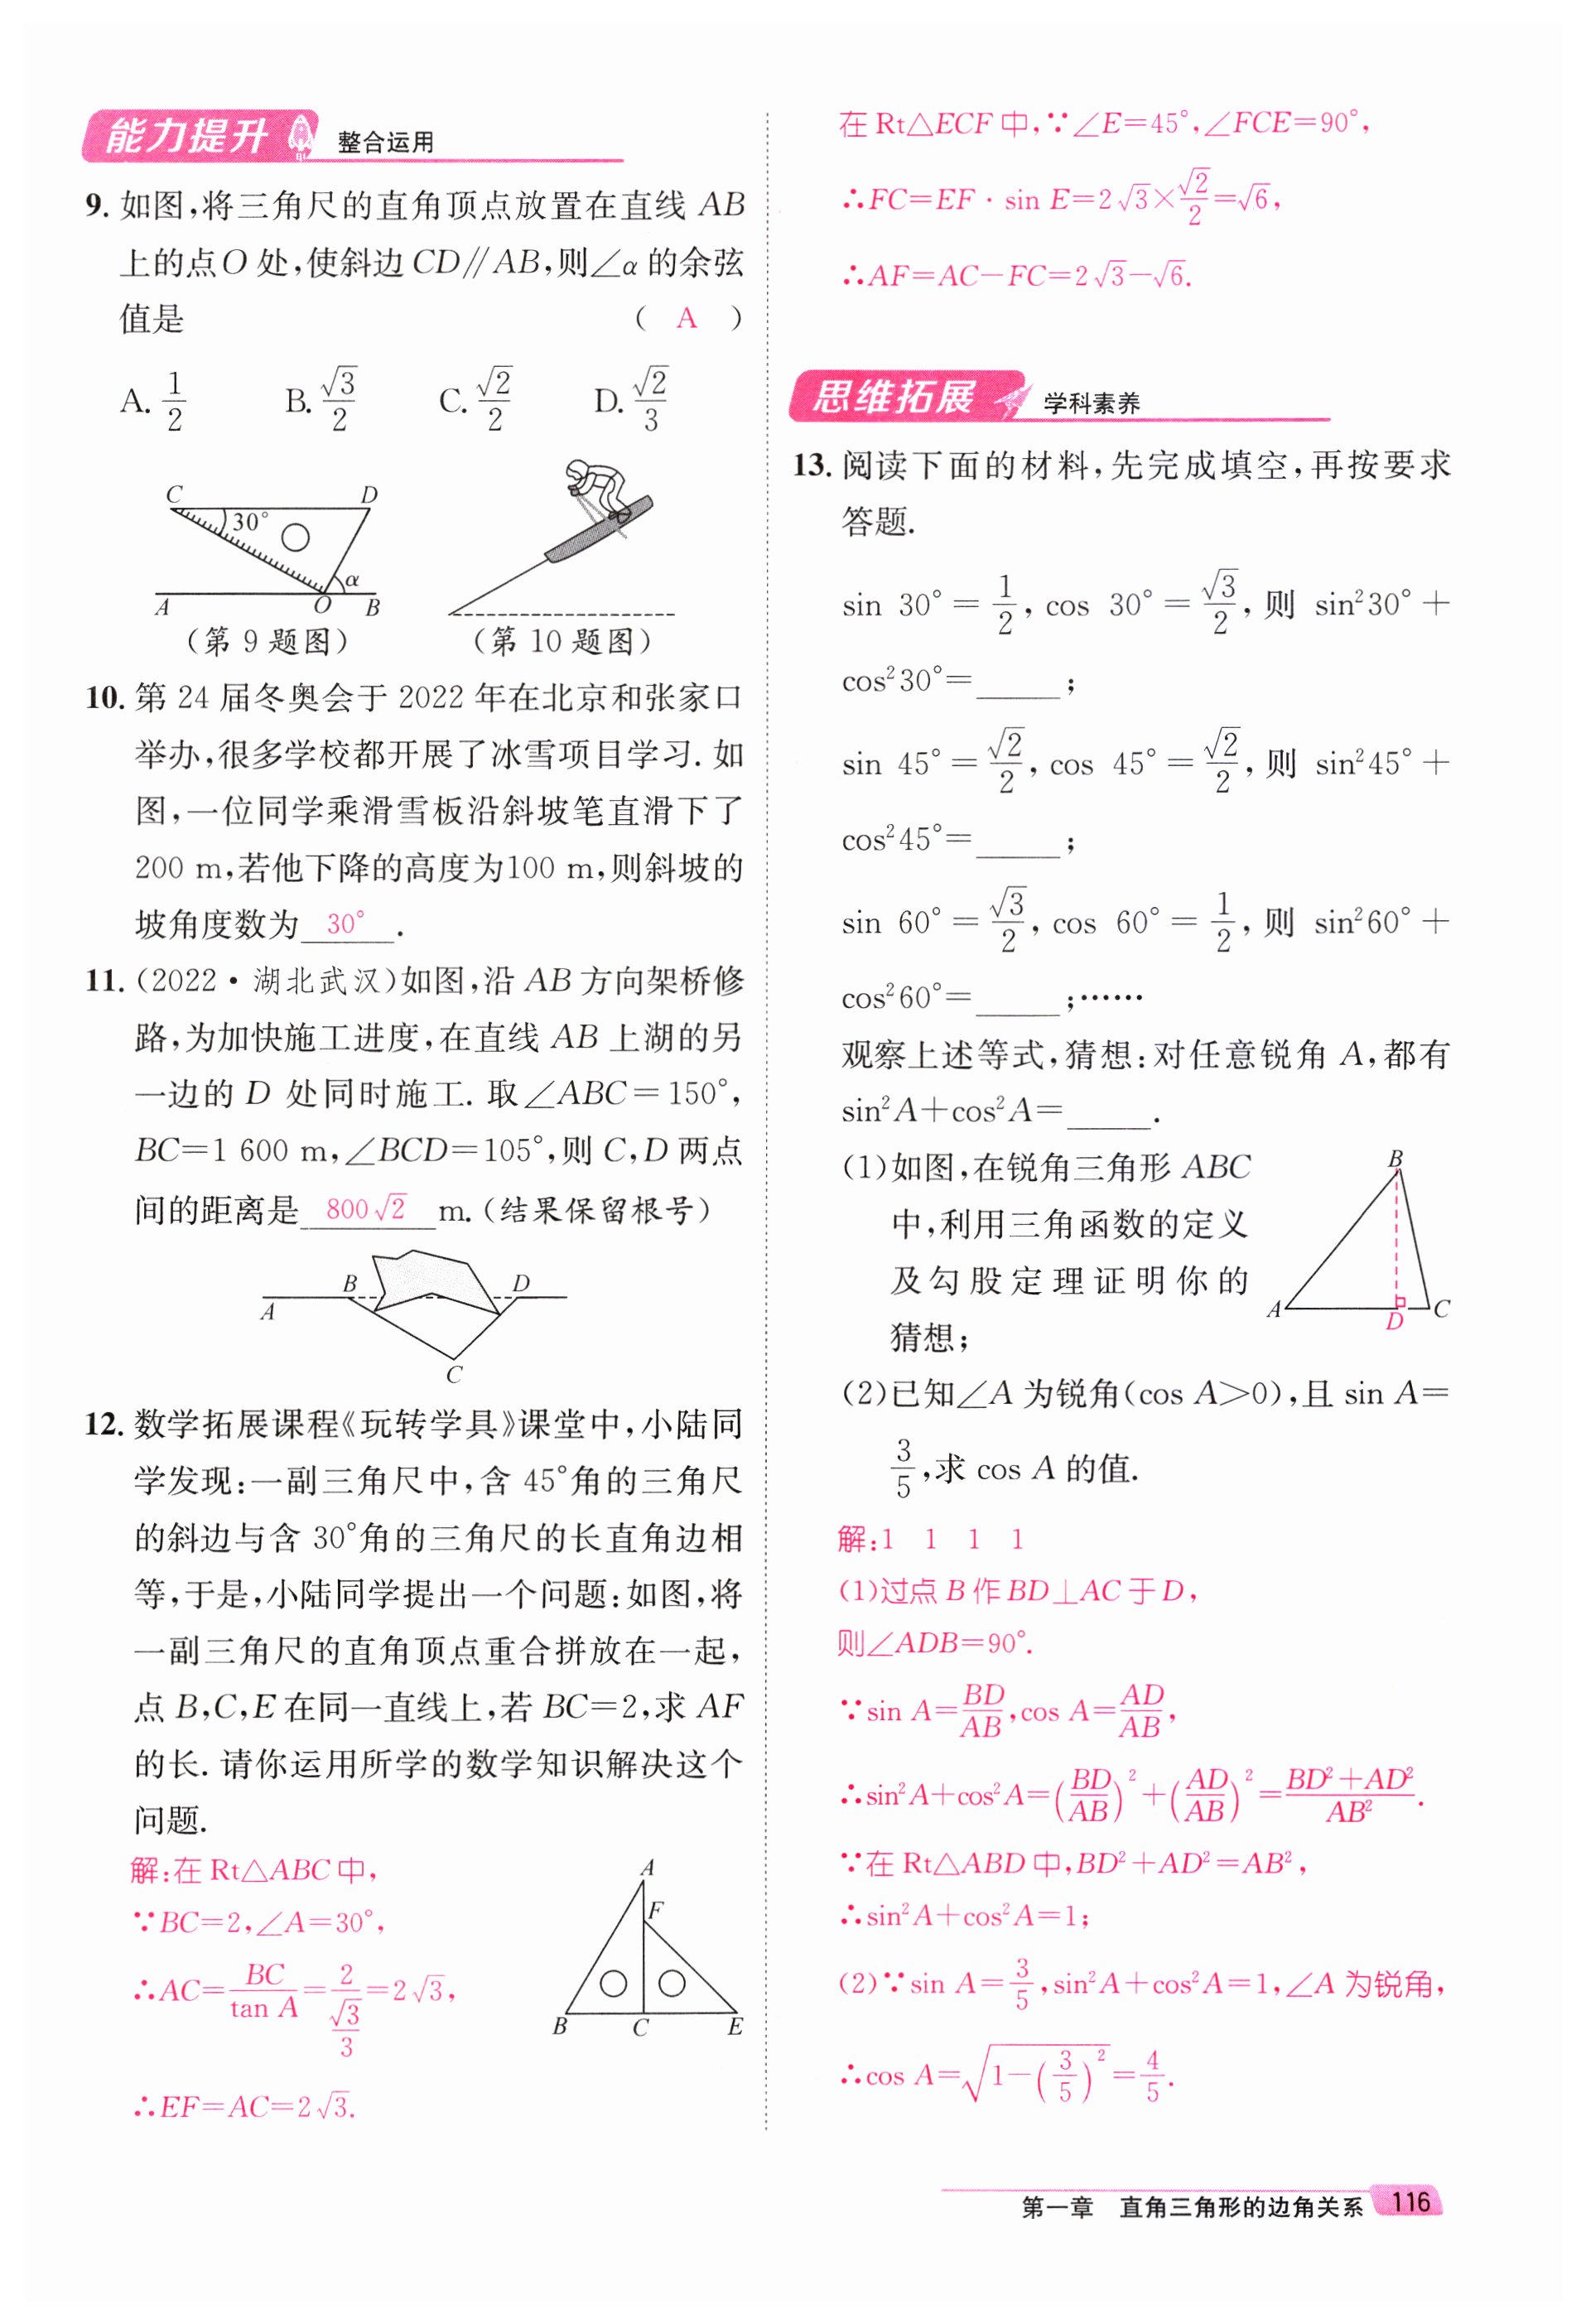 能力提升 整合运用
9. 如图,将三角尺的直角顶点放置在直线 AB
上的点O 处,使斜边 CD∥AB,则∠α 的余弦
值是 ( A )
A. 1/2 B. √3/2 C. √2/2 D. √2/3
C D 30° α A O B
(第 9 题图) (第 10 题图)
10. 第 24 届冬奥会于 2022 年在北京和张家口
举办,很多学校都开展了冰雪项目学习. 如
图,一位同学乘滑雪板沿斜坡笔直滑下了
200 m,若他下降的高度为100 m,则斜坡的
坡角度数为 30° .
11. (2022·湖北武汉)如图,沿 AB 方向架桥修
路,为加快施工进度,在直线 AB 上湖的另
一边的 D 处同时施工. 取∠ABC=150°,
BC=1 600 m,∠BCD=105°,则 C,D 两点
间的距离是 800√2 m.(结果保留根号)
A B D C
12. 数学拓展课程《玩转学具》课堂中,小陆同
学发现:一副三角尺中,含 45°角的三角尺
的斜边与含 30°角的三角尺的长直角边相
等,于是,小陆同学提出一个问题:如图,将
一副三角尺的直角顶点重合拼放在一起,
点 B,C,E 在同一直线上,若 BC=2,求 AF
的长. 请你运用所学的数学知识解决这个
问题.
解:在 Rt△ABC 中,
∵BC=2,∠A=30°,
∴AC=BC/tan A=2/(√3/3)=2√3,
∴EF=AC=2√3.
A F B C E
在 Rt△ECF 中,∵∠E=45°,∠FCE=90°,
∴FC=EF·sin E=2√3×√2/2=√6,
∴AF=AC-FC=2√3-√6.
思维拓展 学科素养
13. 阅读下面的材料,先完成填空,再按要求
答题.
sin 30°=1/2, cos 30°=√3/2, 则 sin²30°+
cos²30°=_____;
sin 45°=√2/2, cos 45°=√2/2, 则 sin²45°+
cos²45°=_____;
sin 60°=√3/2, cos 60°=1/2, 则 sin²60°+
cos²60°=_____;……
观察上述等式,猜想:对任意锐角 A,都有
sin²A+cos²A=_____.
(1)如图,在锐角三角形 ABC
中,利用三角函数的定义
及勾股定理证明你的
猜想;
B A D C
(2)已知∠A 为锐角(cos A>0),且 sin A=
3/5,求 cos A 的值.
解:1 1 1 1
(1)过点 B 作 BD⊥AC 于 D,
则∠ADB=90°.
∵sin A=BD/AB,cos A=AD/AB,
∴sin²A+cos²A=(BD/AB)²+(AD/AB)²=(BD²+AD²)/AB².
∵在 Rt△ABD 中,BD²+AD²=AB²,
∴sin²A+cos²A=1;
(2)∵sin A=3/5,sin²A+cos²A=1,∠A 为锐角,
∴cos A=√(1-(3/5)²)=4/5.
第一章 直角三角形的边角关系 116